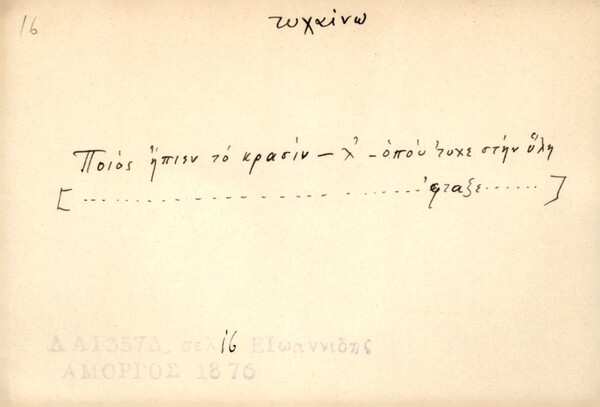 16
τυχαίνω
Ποιός ἤπιεν τό κρασίν – χ' – ὁπού 'τυχε στήν ὕλη
[ ........................................ 'φταξε ...... ]
ΔΑ1357Δ, σελ 16 ΕΙωαννιδης
ΑΜΟΡΓΟΣ 1876